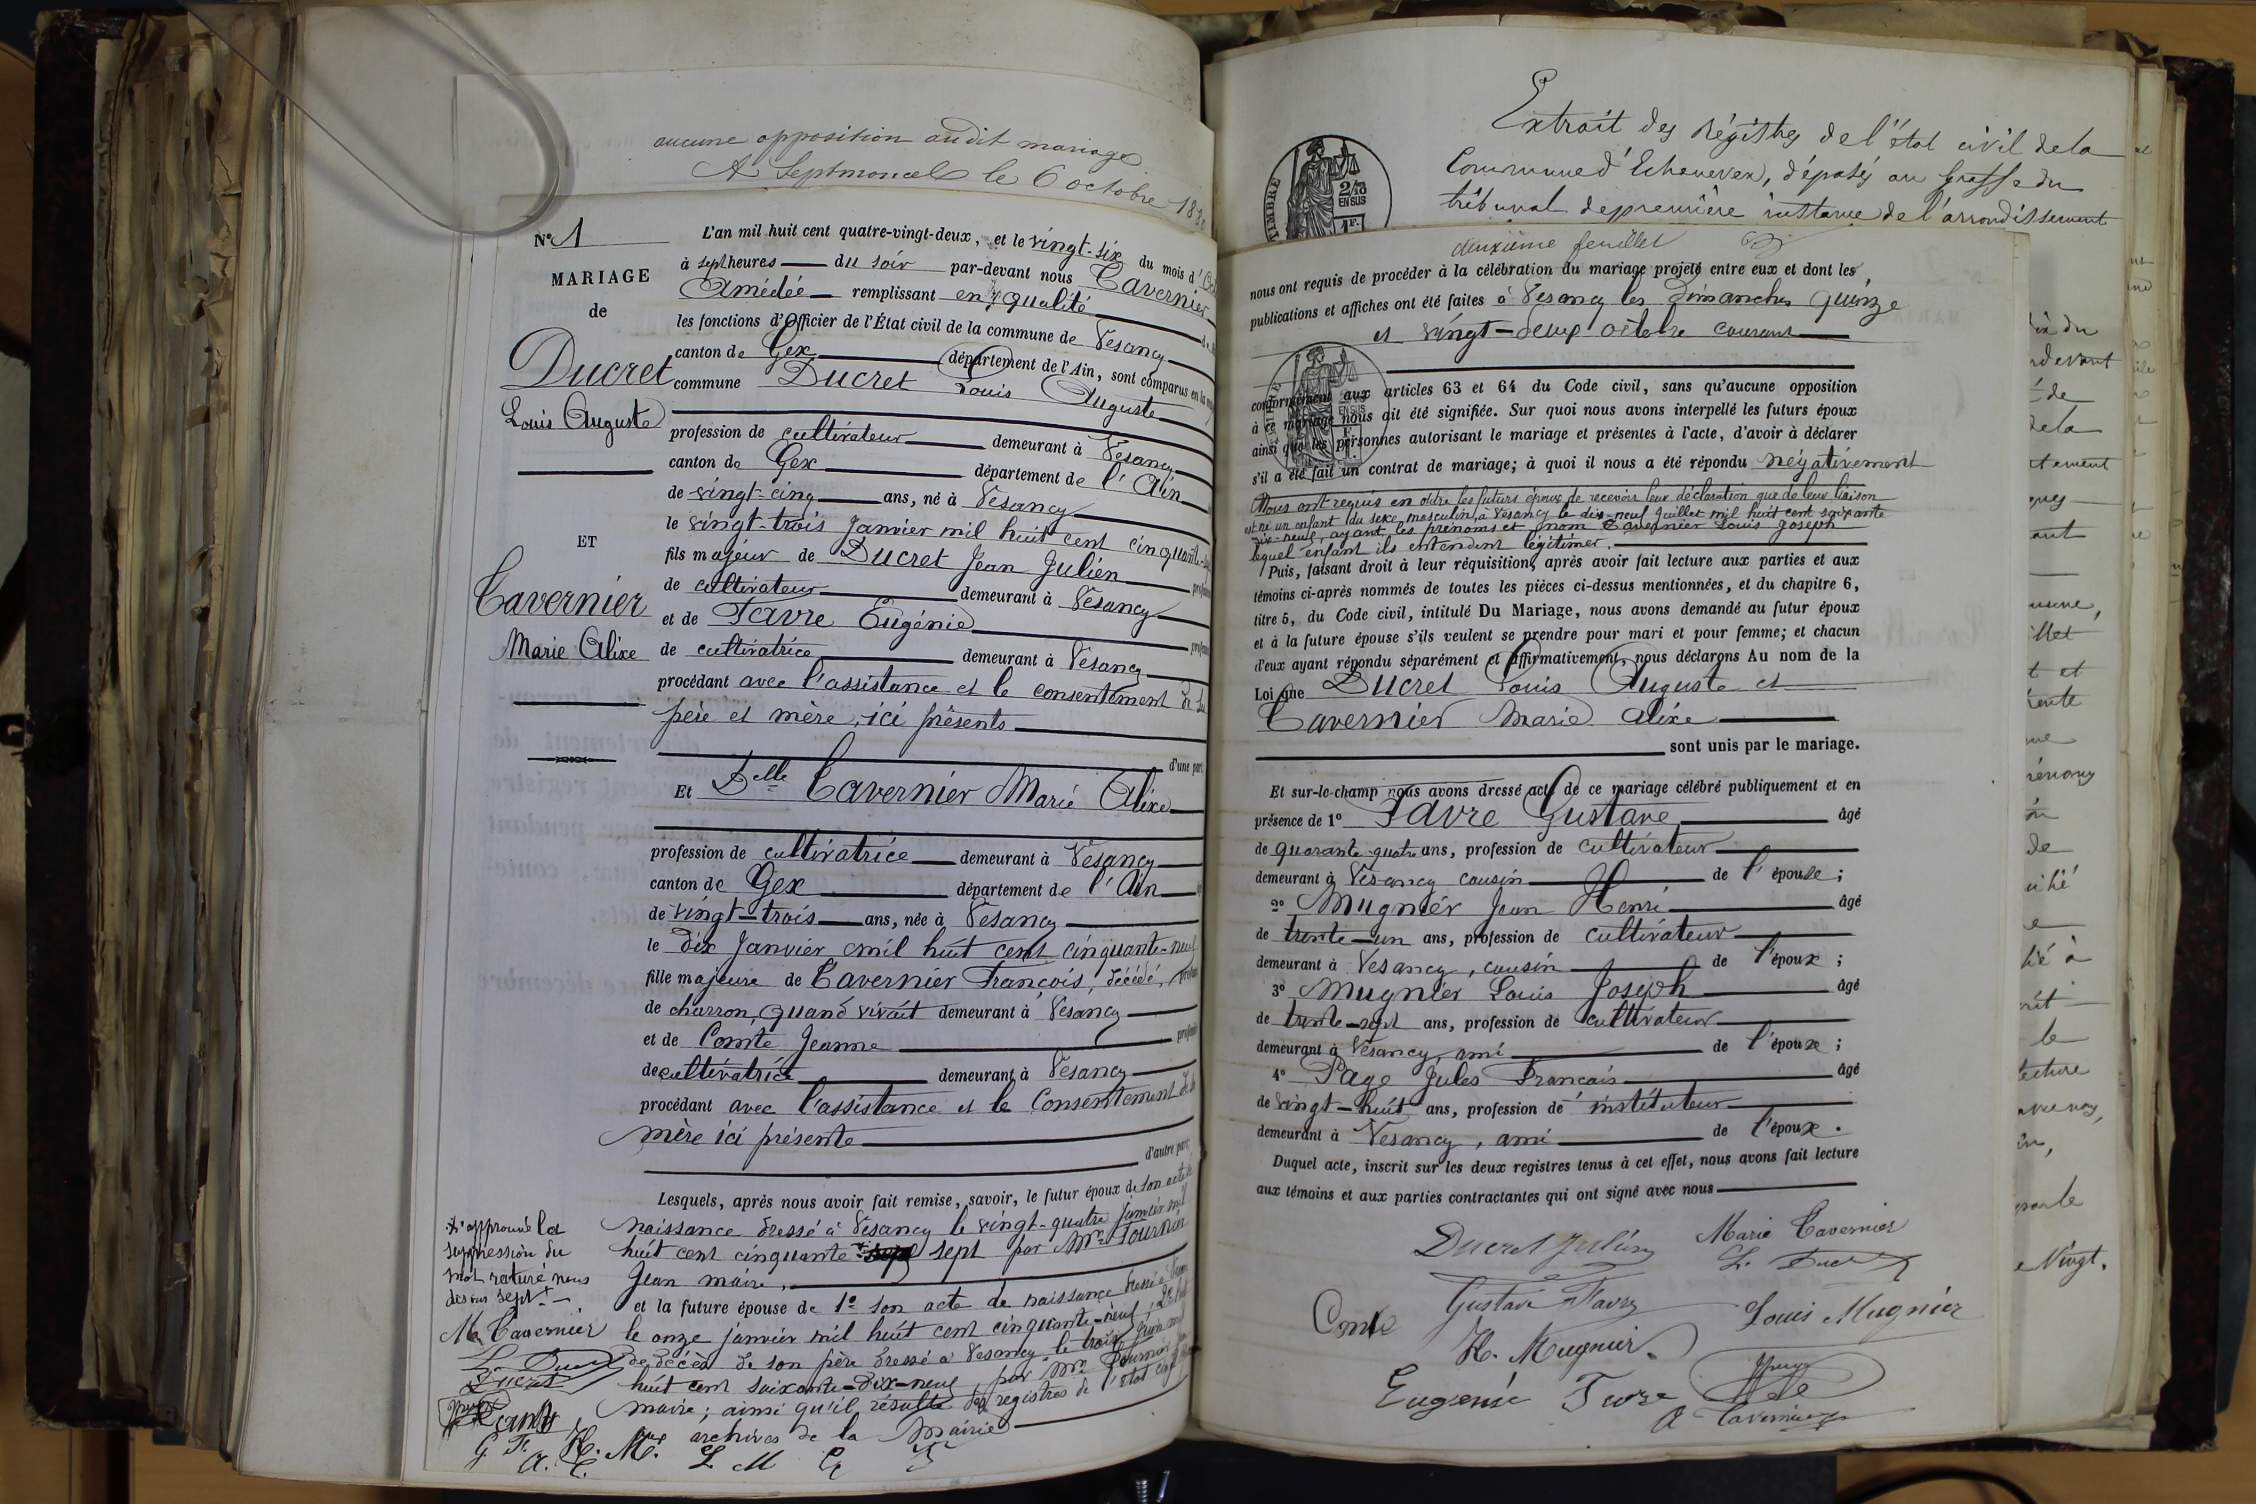 aucune opposition audit mariage
A Septmoncel le 6 octobre 18
N° 1
MARIAGE
de
Ducret
Louis Auguste
ET
Tavernier
Marie Alixe
L'an mil huit cent quatre-vingt-deux, et le vingt-six du mois d'
à sept heures du soir par-devant nous Tavernier
Amédée remplissant en qualité
les fonctions d'Officier de l'État civil de la commune de Vesancy
canton de Gex département de l'Ain, sont comparus en la
commune Ducret Louis Auguste
profession de cultivateur demeurant à Vesancy
canton de Gex département de l'Ain
de vingt-cinq ans, né à Vesancy
le vingt-trois Janvier mil huit cent cinquante-
fils majeur de Ducret Jean Julien
de cultivateur demeurant à Vesancy
et de Favre Eugénie
de cultivatrice demeurant à Vesancy
procédant avec l'assistance et le consentement de
père et mère, ici présents
d'une par
Et Delle Tavernier Marie Alixe
profession de cultivatrice demeurant à Vesancy
canton de Gex département de l'Ain
de vingt-trois ans, née à Vesancy
le dix Janvier mil huit cent cinquante-neuf
fille majeure de Tavernier François, décédé,
de charron, quand vivait demeurant à Vesancy
et de Comte Jeanne
de cultivatrice demeurant à Vesancy
procédant avec l'assistance et le consentement de
mère ici présente
d'autre part
Lesquels, après nous avoir fait remise, savoir, le futur époux de son acte de
naissance dressé à Vesancy le vingt-quatre janvier mil
huit cent cinquante sept par Mr Fournier
Jean maire,
et la future épouse de 1° son acte de naissance dressé à
le onze janvier mil huit cent cinquante-neuf, 2°
de décès de son père dressé à Vesancy le trois Juin
huit cent soixante-dix-neuf, par Mr Fournier
maire; ainsi qu'il résulte des registres de l'état
archives de la Mairie
approuvé la
suppression du
mot raturé
dessus sept
M. Tavernier
L. Ducret
Ducret
Comte
G. F. H. M. L M
A. T.
Extrait des Régistres de l'état civil de la
Commune d'Echenevex, déposés au Greffe du
tribunal de première instance de l'arrondissement
TIMBRE
2/10
EN SUS
1F.
deuxième feuillet
nous ont requis de procéder à la célébration du mariage projeté entre eux et dont les
publications et affiches ont été faites à Vesancy les Dimanches quinze
et vingt-deux octobre courant
conformément aux articles 63 et 64 du Code civil, sans qu'aucune opposition
à ce mariage nous ait été signifiée. Sur quoi nous avons interpellé les futurs époux
ainsi que les personnes autorisant le mariage et présentes à l'acte, d'avoir à déclarer
s'il a été fait un contrat de mariage; à quoi il nous a été répondu négativement
Nous ont requis en outre les futurs époux de recevoir leur déclaration que de leur liaison
est né un enfant du sexe masculin, à Vesancy le dix-neuf Juillet mil huit cent soixante
dix-neuf, ayant les prénoms et nom Tavernier Louis Joseph
lequel enfant ils entendent légitimer.
Puis, faisant droit à leur réquisition, après avoir fait lecture aux parties et aux
témoins ci-après nommés de toutes les pièces ci-dessus mentionnées, et du chapitre 6,
titre 5, du Code civil, intitulé Du Mariage, nous avons demandé au futur époux
et à la future épouse s'ils veulent se prendre pour mari et pour femme; et chacun
d'eux ayant répondu séparément et affirmativement, nous déclarons Au nom de la
Loi que Ducret Louis Auguste et
Tavernier Marie Alixe
sont unis par le mariage.
Et sur-le-champ nous avons dressé acte de ce mariage célébré publiquement et en
présence de 1° Favre Gustave âgé
de quarante-quatre ans, profession de cultivateur
demeurant à Vesancy cousin de l'épouse;
2° Mugnier Jean Henri âgé
de trente-un ans, profession de cultivateur
demeurant à Vesancy, cousin de l'époux;
3° Mugnier Louis Joseph âgé
de trente-sept ans, profession de cultivateur
demeurant à Vesancy, ami de l'époux;
4° Page Jules François âgé
de vingt-huit ans, profession de instituteur
demeurant à Vesancy, ami de l'époux.
Duquel acte, inscrit sur les deux registres tenus à cet effet, nous avons fait lecture
aux témoins et aux parties contractantes qui ont signé avec nous
Ducret Julien Marie Tavernier
L. Ducret
Gustave Favre
Comte Louis Mugnier
H. Mugnier
Eugénie Favre
A Tavernier